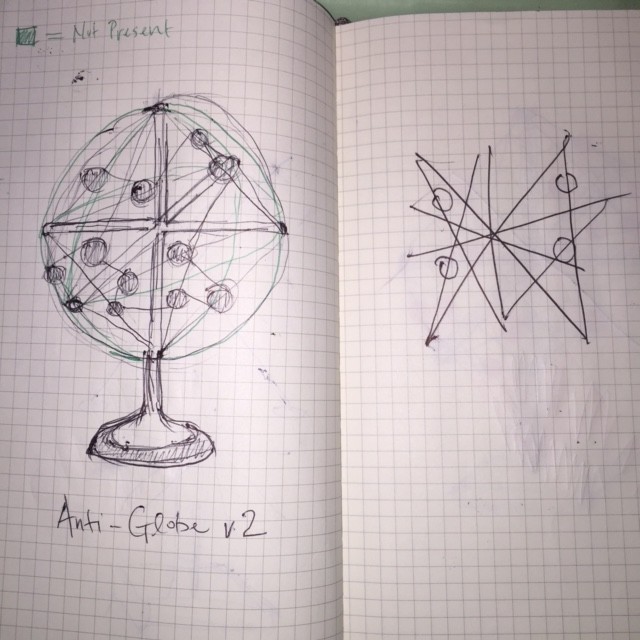 = Not Present
Anti-Globe v2